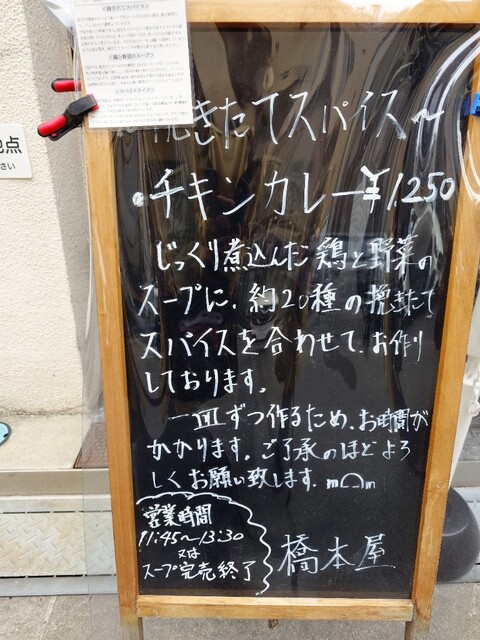 <挽きたてスパイス>
<鶏と野菜のスープ>
地点
さい
挽きたてスパイス〜
・チキンカレー¥1,250
じっくり煮込んだ鶏と野菜の
スープに、約20種の挽きたて
スパイスを合わせて、お作り
しております。
一皿ずつ作るため、お時間が
かかります。ご了承のほどよろ
しくお願い致します。m⌒m
営業時間
11:45〜13:30
又は
スープ完売終了
橋本屋